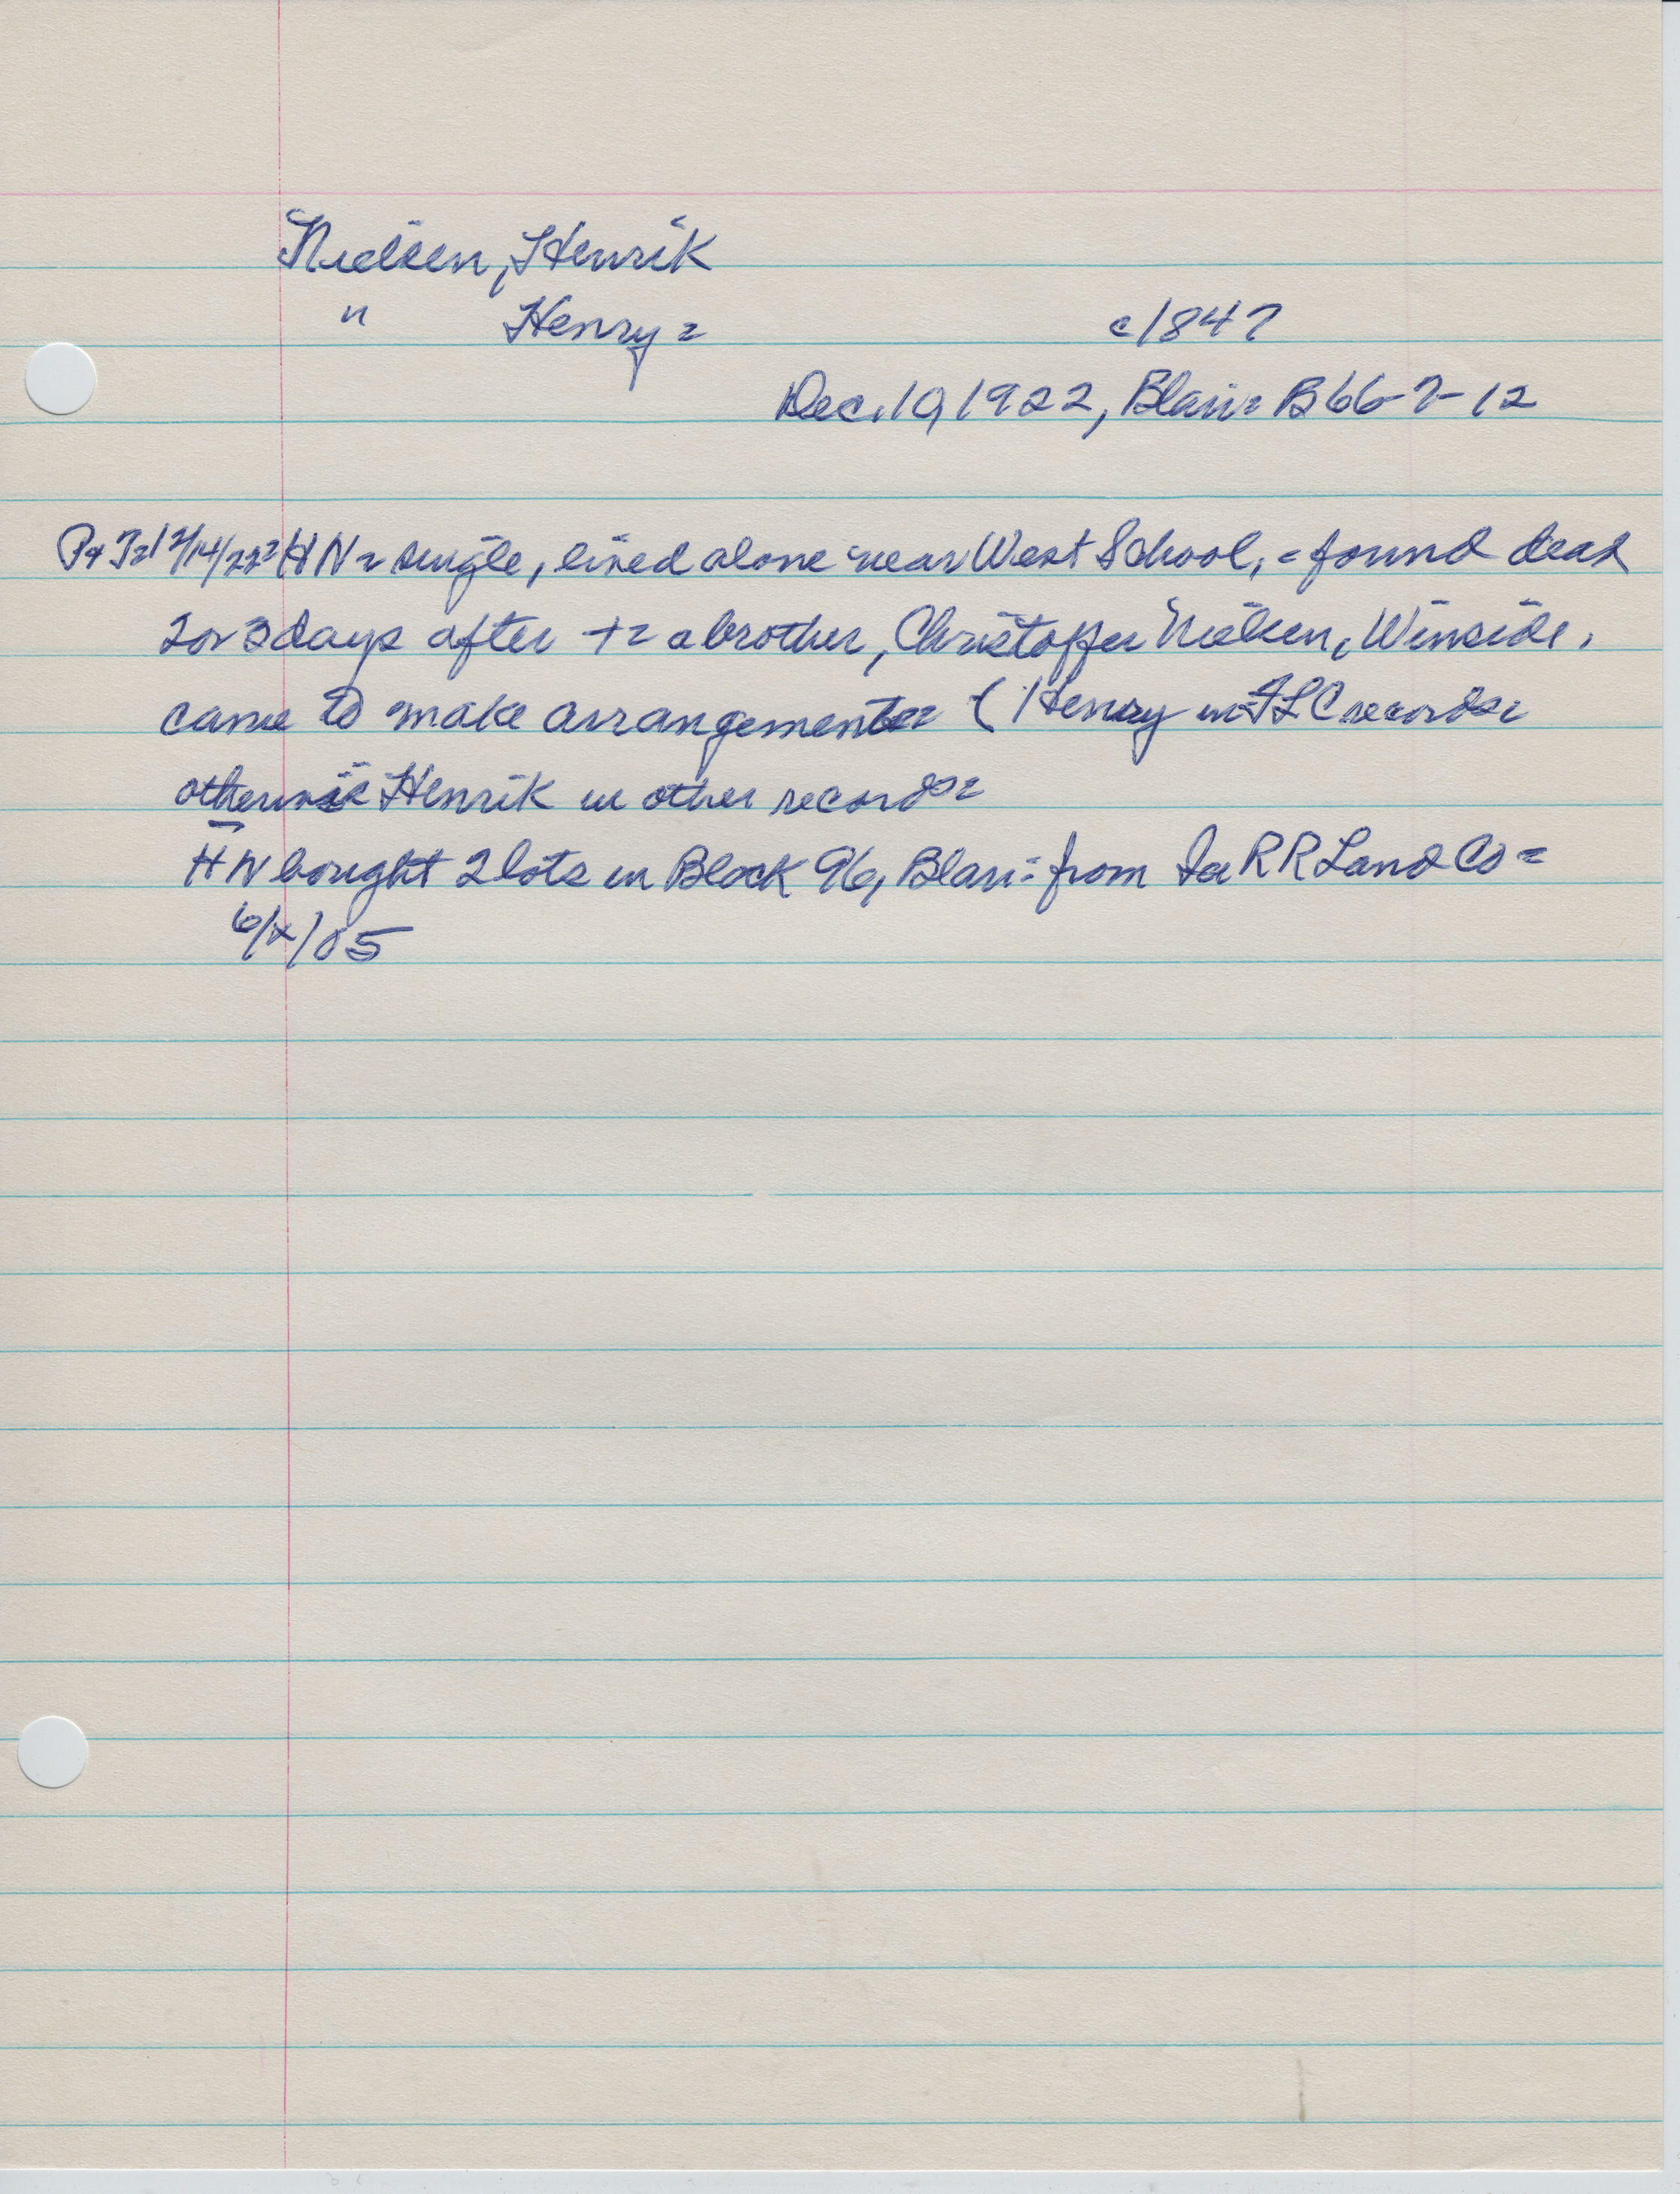 Nielsen, Henrik
" Henry = c1847
Dec. 10 1922, Blair = B66-7-12
P & T = 12/14/22 = HN = single, lived alone near West School, = found dead
2 or 3 days after += a brother, Christoffer Nielsen, Winside,
came to make arrangements = (Henry in FLC records =
otherwise Henrik in other records =
HN bought 2 lots in Block 96, Blair = from Ia RR Land Co =
6/x/05